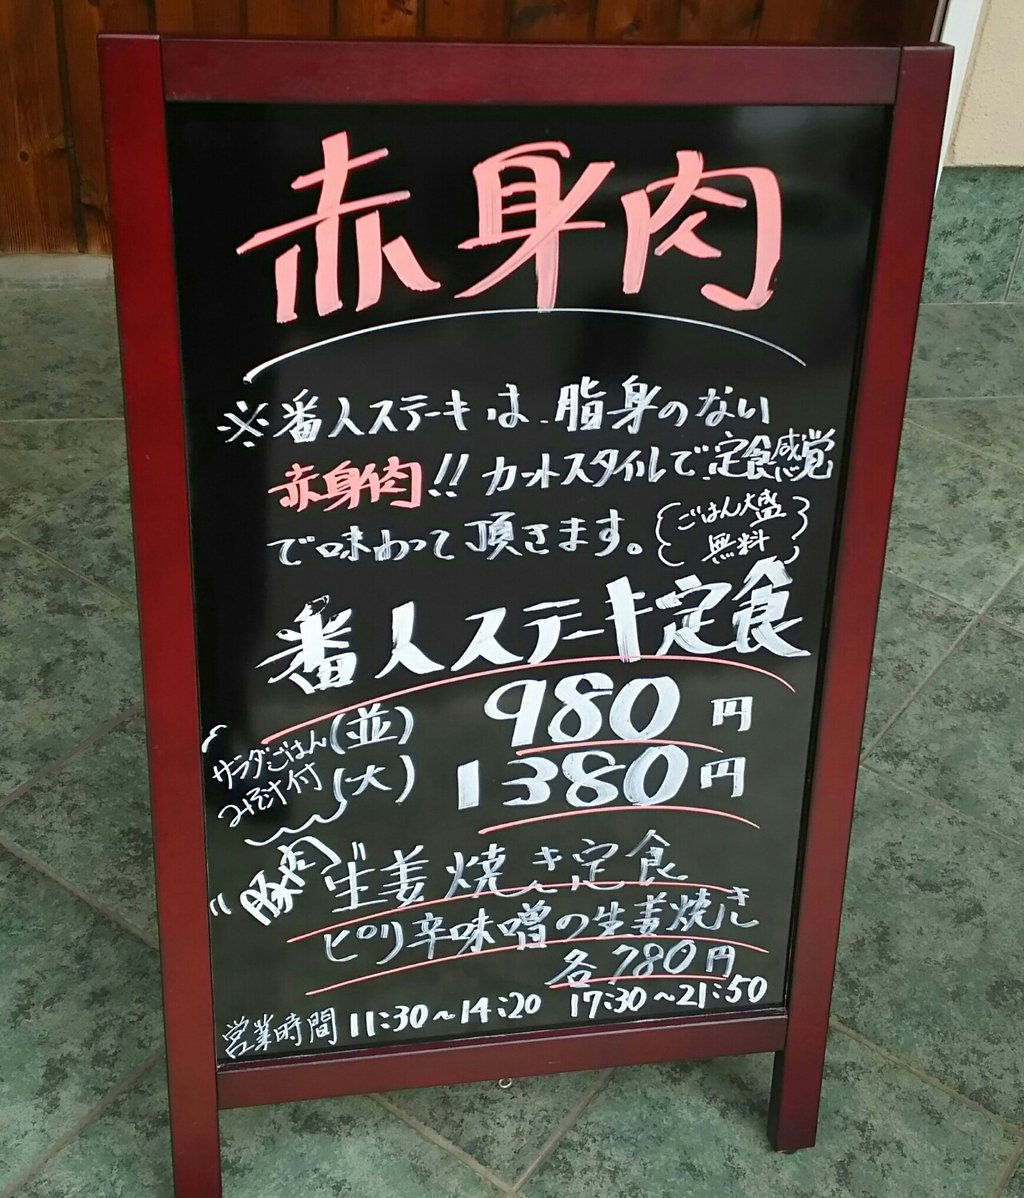 赤身肉
※番人ステーキは、脂身のない
赤身肉!! カットスタイルで、定食感覚
で味わって頂きます。
(ごはん大盛
無料)
番人ステーキ定食
サラダ・ごはん
みそ汁付
(並) 980円
(大) 1380円
"豚肉"
生姜焼き定食
ピリ辛味噌の生姜焼き
各780円
営業時間 11:30~14:20 17:30~21:50